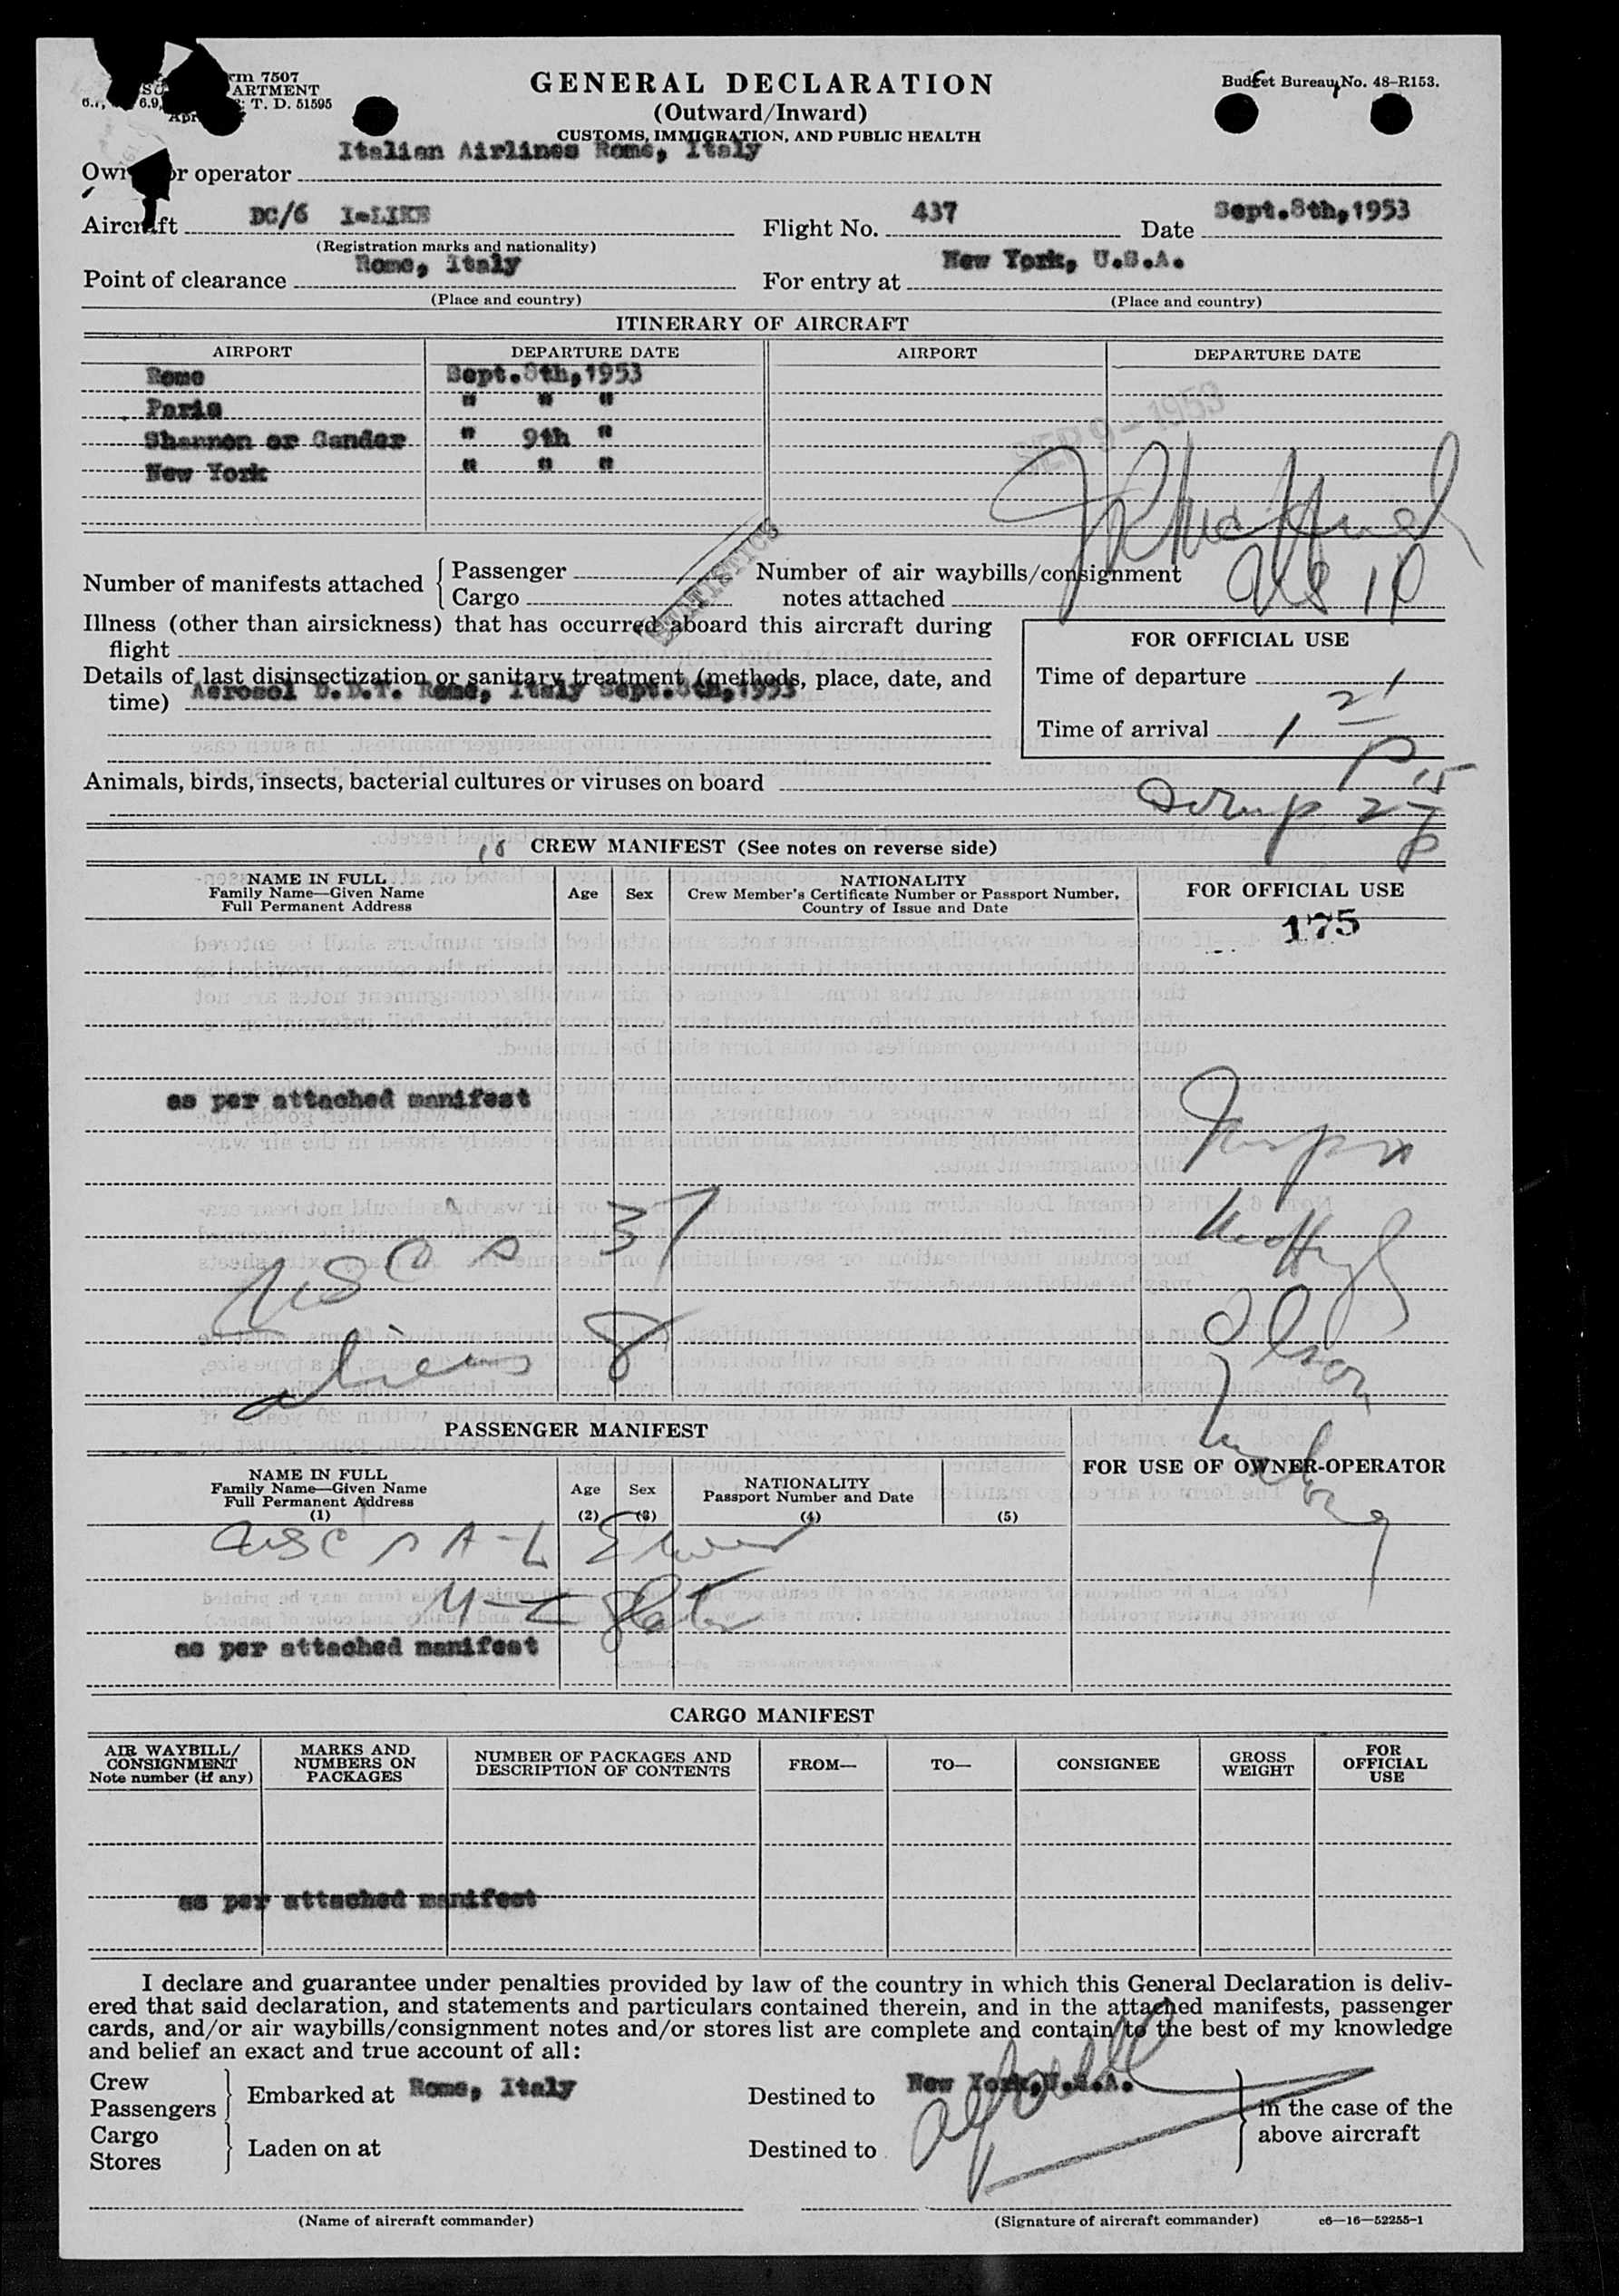 rm 7507
ARTMENT
T. D. 51595
GENERAL DECLARATION
(Outward/Inward)
CUSTOMS, IMMIGRATION, AND PUBLIC HEALTH
Budget Bureau No. 48-R153.
Italian Airlines Rome, Italy
or operator
Aircraft DC/6 I-LIKE
(Registration marks and nationality)
Flight No. 437
Date Sept.8th,1953
Point of clearance Rome, Italy
(Place and country)
For entry at New York, U.S.A.
(Place and country)
ITINERARY OF AIRCRAFT
AIRPORT DEPARTURE DATE AIRPORT DEPARTURE DATE
Rome Sept.8th,1953
Paris " " "
Shannon or Gander " 9th "
New York " " "
SEP 9 - 1953
Number of manifests attached Passenger
Cargo
STATISTICS
Number of air waybills/consignment
notes attached
Illness (other than airsickness) that has occurred aboard this aircraft during
flight
Details of last disinsectization or sanitary treatment (methods, place, date, and
time) Aerosol D.D.T. Rome, Italy Sept.8th,1953
FOR OFFICIAL USE
Time of departure
Time of arrival
Animals, birds, insects, bacterial cultures or viruses on board
CREW MANIFEST (See notes on reverse side)
NAME IN FULL
Family Name—Given Name
Full Permanent Address
Age
Sex
NATIONALITY
Crew Member's Certificate Number or Passport Number,
Country of Issue and Date
FOR OFFICIAL USE
175
as per attached manifest
USC s 37
aliens 8
Olson
PASSENGER MANIFEST
NAME IN FULL
Family Name—Given Name
Full Permanent Address
(1)
Age
(2)
Sex
(3)
NATIONALITY
Passport Number and Date
(4)
(5)
FOR USE OF OWNER-OPERATOR
USC s A-L
M-Z
as per attached manifest
CARGO MANIFEST
AIR WAYBILL/
CONSIGNMENT
Note number (if any)
MARKS AND
NUMBERS ON
PACKAGES
NUMBER OF PACKAGES AND
DESCRIPTION OF CONTENTS
FROM—
TO—
CONSIGNEE
GROSS
WEIGHT
FOR
OFFICIAL
USE
as per attached manifest
I declare and guarantee under penalties provided by law of the country in which this General Declaration is deliv-
ered that said declaration, and statements and particulars contained therein, and in the attached manifests, passenger
cards, and/or air waybills/consignment notes and/or stores list are complete and contain to the best of my knowledge
and belief an exact and true account of all:
Crew
Passengers
Embarked at Rome, Italy
Destined to New York,U.S.A.
Cargo
Stores
Laden on at
Destined to
in the case of the
above aircraft
(Name of aircraft commander)
(Signature of aircraft commander)
c6—16—52255-1